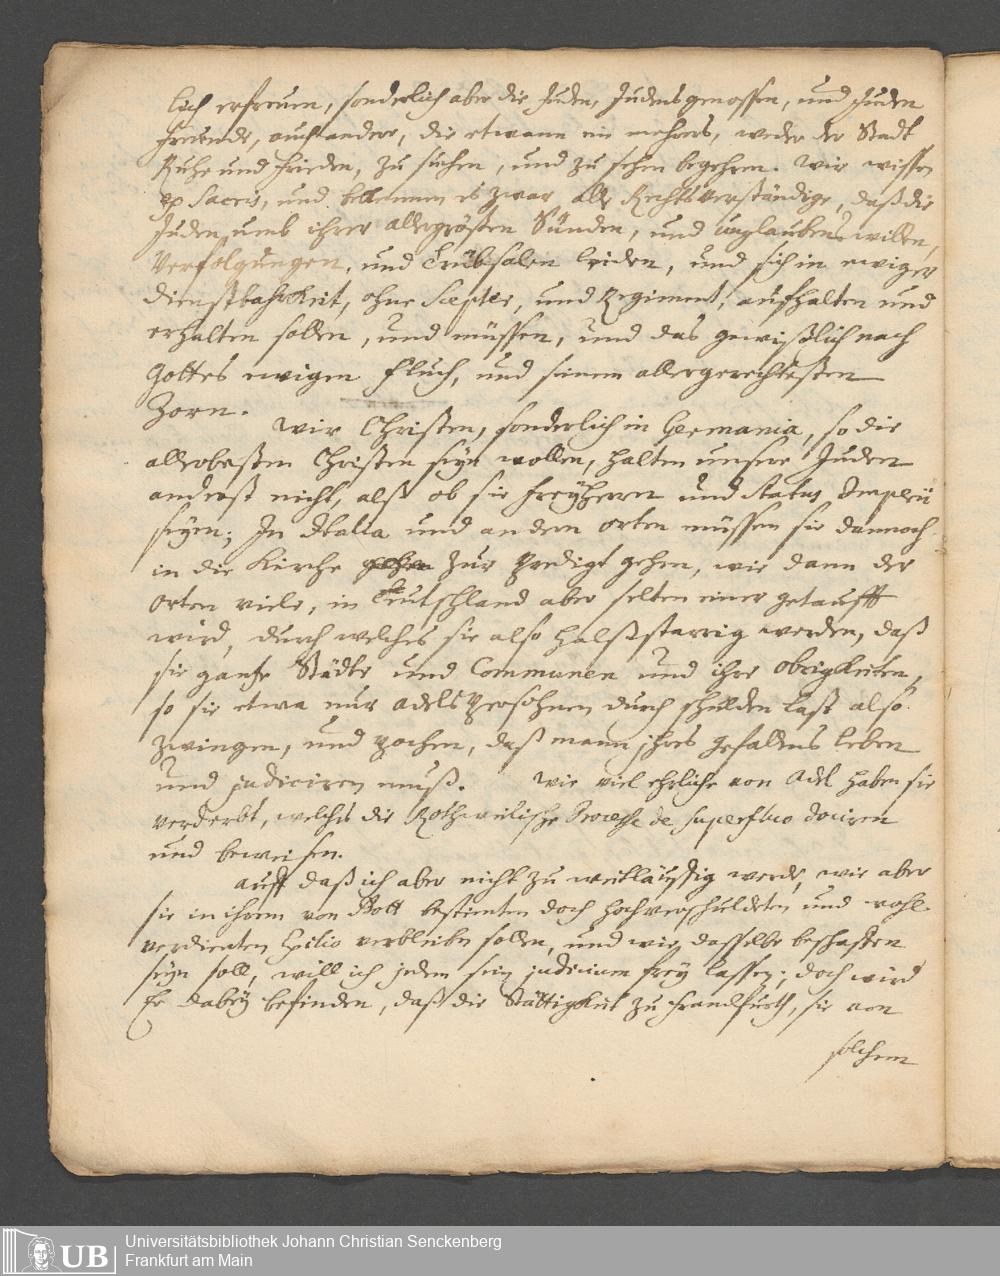 lich erfreuen, sonderlich aber die Juden, Judens genossen, und Juden
Freunde, auch andere, die etwann ein mehrers, weder der Stadt
Ruhe und Frieden, zu suchen, und zu sehen begehren. Wir wissen
ex Sacris, und bekennen es zwar alle Rechtsverständige, daß die
Juden umb ihrer allergrösten Sünden, und unglaubens willen,
Verfolgungen, und Trübsalen leiden, und sich in ewiger
Dienstbahrkeit, ohne Scepter, und Regiment, aufhalten und
erhalten sollen, und müssen, und das gewißlich nach
Gottes ewigen Fluch, und seinem allergerechtesten
Zorn.
Wir Christen, sonderlich in Germania, so die
allerbesten Christen seyn wollen, halten unsere Juden
anderst nicht, alß ob sie Freyherrn und Status Imperii
seyen; In Italia und andern orten müssen sie dannoch
in die Kirche gehen zur Predigt gehen, wie dann der
orten viele, in Teutschland aber selten einer getaufft
wird, durch welches sie also halßstarrig werden, daß
sie gantze Städte und Communen und ihre Obrigkeiten,
so sie etwa nur Adels Persohnen durch schulden last also
zwingen, und pochen, daß mann ihres gefallens leben
und judiciren muß. Wie viel ehrliche von Adel haben sie
verderbt, welches die Rothweilische Processe de superfluo dociren
und beweisen.
Auff daß ich aber nicht zu weitläufftig werde, wie aber
sie in ihrem von Gott bestimten doch hochverschuldeten und wohl
verdienten Exilio verbleiben sollen, und wie dasselbe beschaffen
seyn soll, will ich jedem sein judicium frey lassen; doch wird
Er dabey befinden, daß die Stättigkeit zu Franckfurth, sie von
solchem
UB
Universitätsbibliothek Johann Christian Senckenberg
Frankfurt am Main